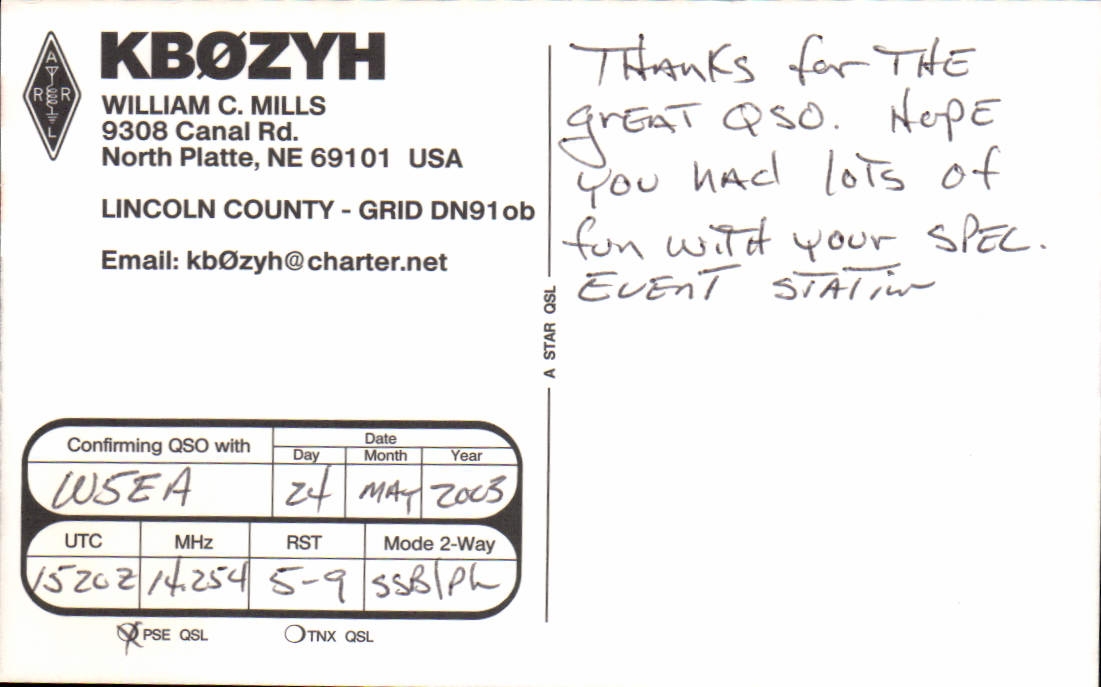 ARRL
KBØZYH
WILLIAM C. MILLS
9308 Canal Rd.
North Platte, NE 69101 USA
LINCOLN COUNTY - GRID DN91ob
Email: kbØzyh@charter.net
Confirming QSO with
Date
Day Month Year
W5EA 24 MAY 2003
UTC MHz RST Mode 2-Way
1520Z 14.254 5-9 SSB/Ph
PSE QSL TNX QSL
A STAR QSL
THANKS for THE
GrEAT QSO. HOPE
YOU HAd lOTS Of
fun WITH your SPEC.
EVENT STATion